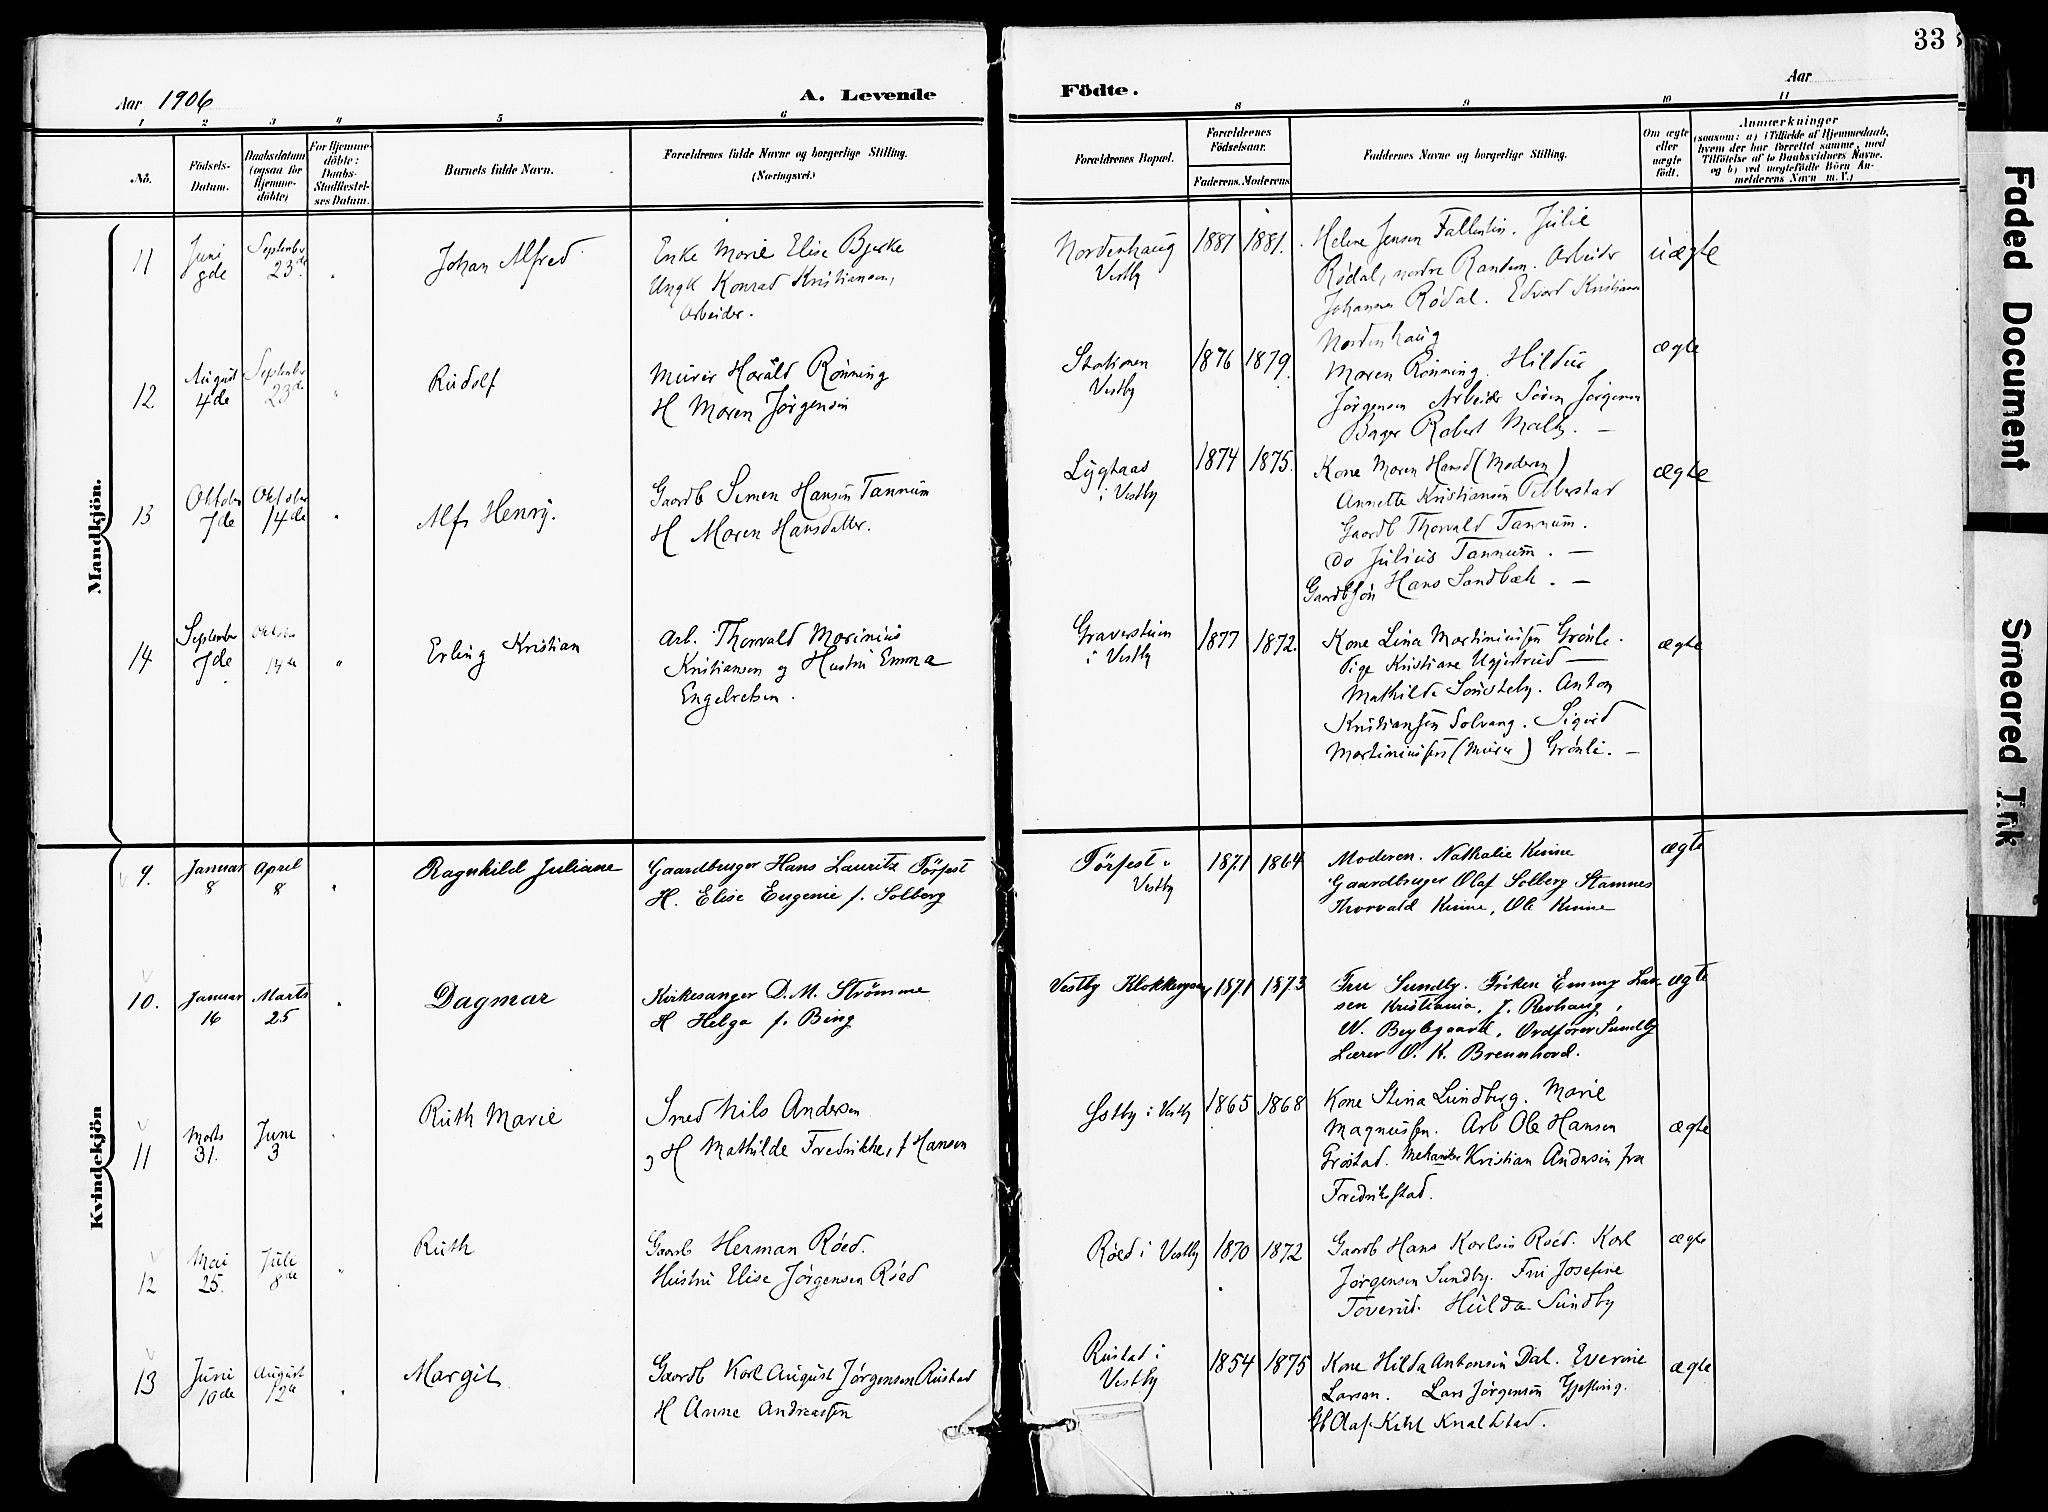 33
Aar 1906
A. Levende
Födte.
Aar
1 2 3 4 5 6 8 9 10 11
No.
Födsels-Datum.
Daabsdatum (ogsaa for Hjemme-döbte)
For Hjemme-döbte: Daabs-Stadfæstel-ses Datum.
Barnets fulde Navn.
Forældrenes fulde Navne og borgerlige Stilling. (Næringsvei.)
Forældrenes Bopæl.
Forældrenes Födselsaar.
Faderens. Moderens
Faddernes Navne og borgerlige Stilling.
Om ægte eller uægte födt.
Anmærkninger
(saasom: a) i Tilfælde af Hjemmedaab,
hvem der har forrettet samme, med
Tilföielse af to Daabsvidners Navne.
og b) ved uægtefödte Börn An-
melderens Navn m. V.)
Mandkjön.
11 Juni 9de September 23de " Johan Alfred
Enke Marie Elise Bjerke
Ungk Konrad Kristiansen,
Arbeider.
Nordenhaug Vestby 1887 1881.
Helene Jensen Fallentin. Julie
Rødal, nordre Randem. Arbeider
Johannes Rødal. Edvard Kristiansen
Nordenhaug
uægte
12. August 4de September 23de " Rudolf
Murer Harald Rønning
H Maren Jørgensen
Stationen Vestby 1876 1879.
Maren Rønning. Hildur
Jørgensen Arbeider Søren Jørgensen
Bager Robert Malby. —
ægte
13 Oktober 7de Oktober 14de " Alf Henry.
Gaardb Simen Hansen Tannum
H Maren Hansdatter.
Lygtaas i Vestby 1874 1875.
Kone Maren Hansd (Moderen)
Annette Kristiansen Pillerstad
Gaardb Thorvald Tannum.
do Julius Tannum. —
Gaardbsøn Hans Sandbæk. —
ægte
14 September 7de Oktober 14de " Erling Kristian
Arb. Thorvald Marinius
Kristiansen og Hustru Emma
Engelretsen.
i Vestby 1877 1872.
Kone Lina Martiniussen Grønli.
Pige Kristiane —
Mathilde Sønsteby. Anton
Kristiansen Solvang. Sigurd
Martiniussen (Murer) Grønli. —
ægte
Kvindekjön
9. Januar 8 April 8 " Ragnhild Juliane
Gaardbruger Hans Lauritz Tørfest
H. Elise Eugenie f. Solberg
Tørfest i Vestby 1871 1864
Moderen. Nathalie Kinne
Gaardbruger Olaf Solberg Stamnes
Thorvald Kinne, Ole Kinne
ægte
10. Januar 16 Marts 25 " Dagmar
Kirkesanger D. M. Strømme
H Helga f. Bing
Vestby 1871 1873
Fru Sundby. Frøken Emmy Lar-
sen Kristiania, J. Revhaug,
W. Beylegaard, Ordfører Sundby
Lærer O. K. Brennhovd.
ægte
11 Marts 31. June 3 " Ruth Marie
Smed Nils Andersen
og H Mathilde Fredrikke, f Hansen
i Vestby 1865 1868
Kone Stina Lundberg. Marie
Magnussen. Arb Ole Hansen
Grøstad. Mekaniker Kristian Andersen fra
Fredrikstad.
ægte
12 Mai 25. Juli 8de " Ruth
Gaardb Herman Røed.
Hustru Elise Jørgensen Røed
Røed i Vestby 1870 1872
Gaardb Hans Karlsen Røed. Karl
Jørgensen Sundby. Fru Josefine
Toverud. Hulda Sundby
ægte
13 Juni 10de August 12te " Margit
Gaardb Karl August Jørgensen Rustad
H Anne Andreassen
Rustad i Vestby 1854 1875
Kone Hilda Antonsen Dal. Everine
Larsen. Lars Jørgensen Gjølstad.
Gb Olaf Knalstad.
ægte
Faded Document
Smeared Ink